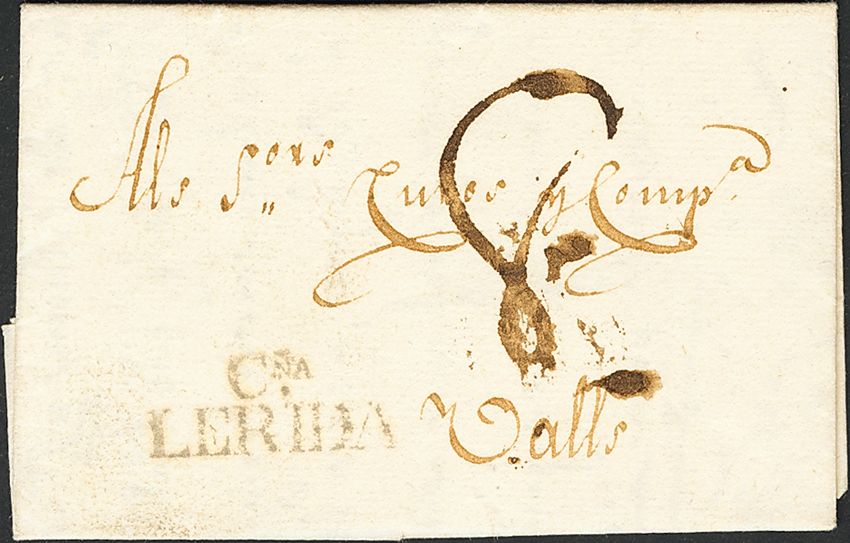 Als S.ores y Comp.a
Cña
LERIDA
Valls